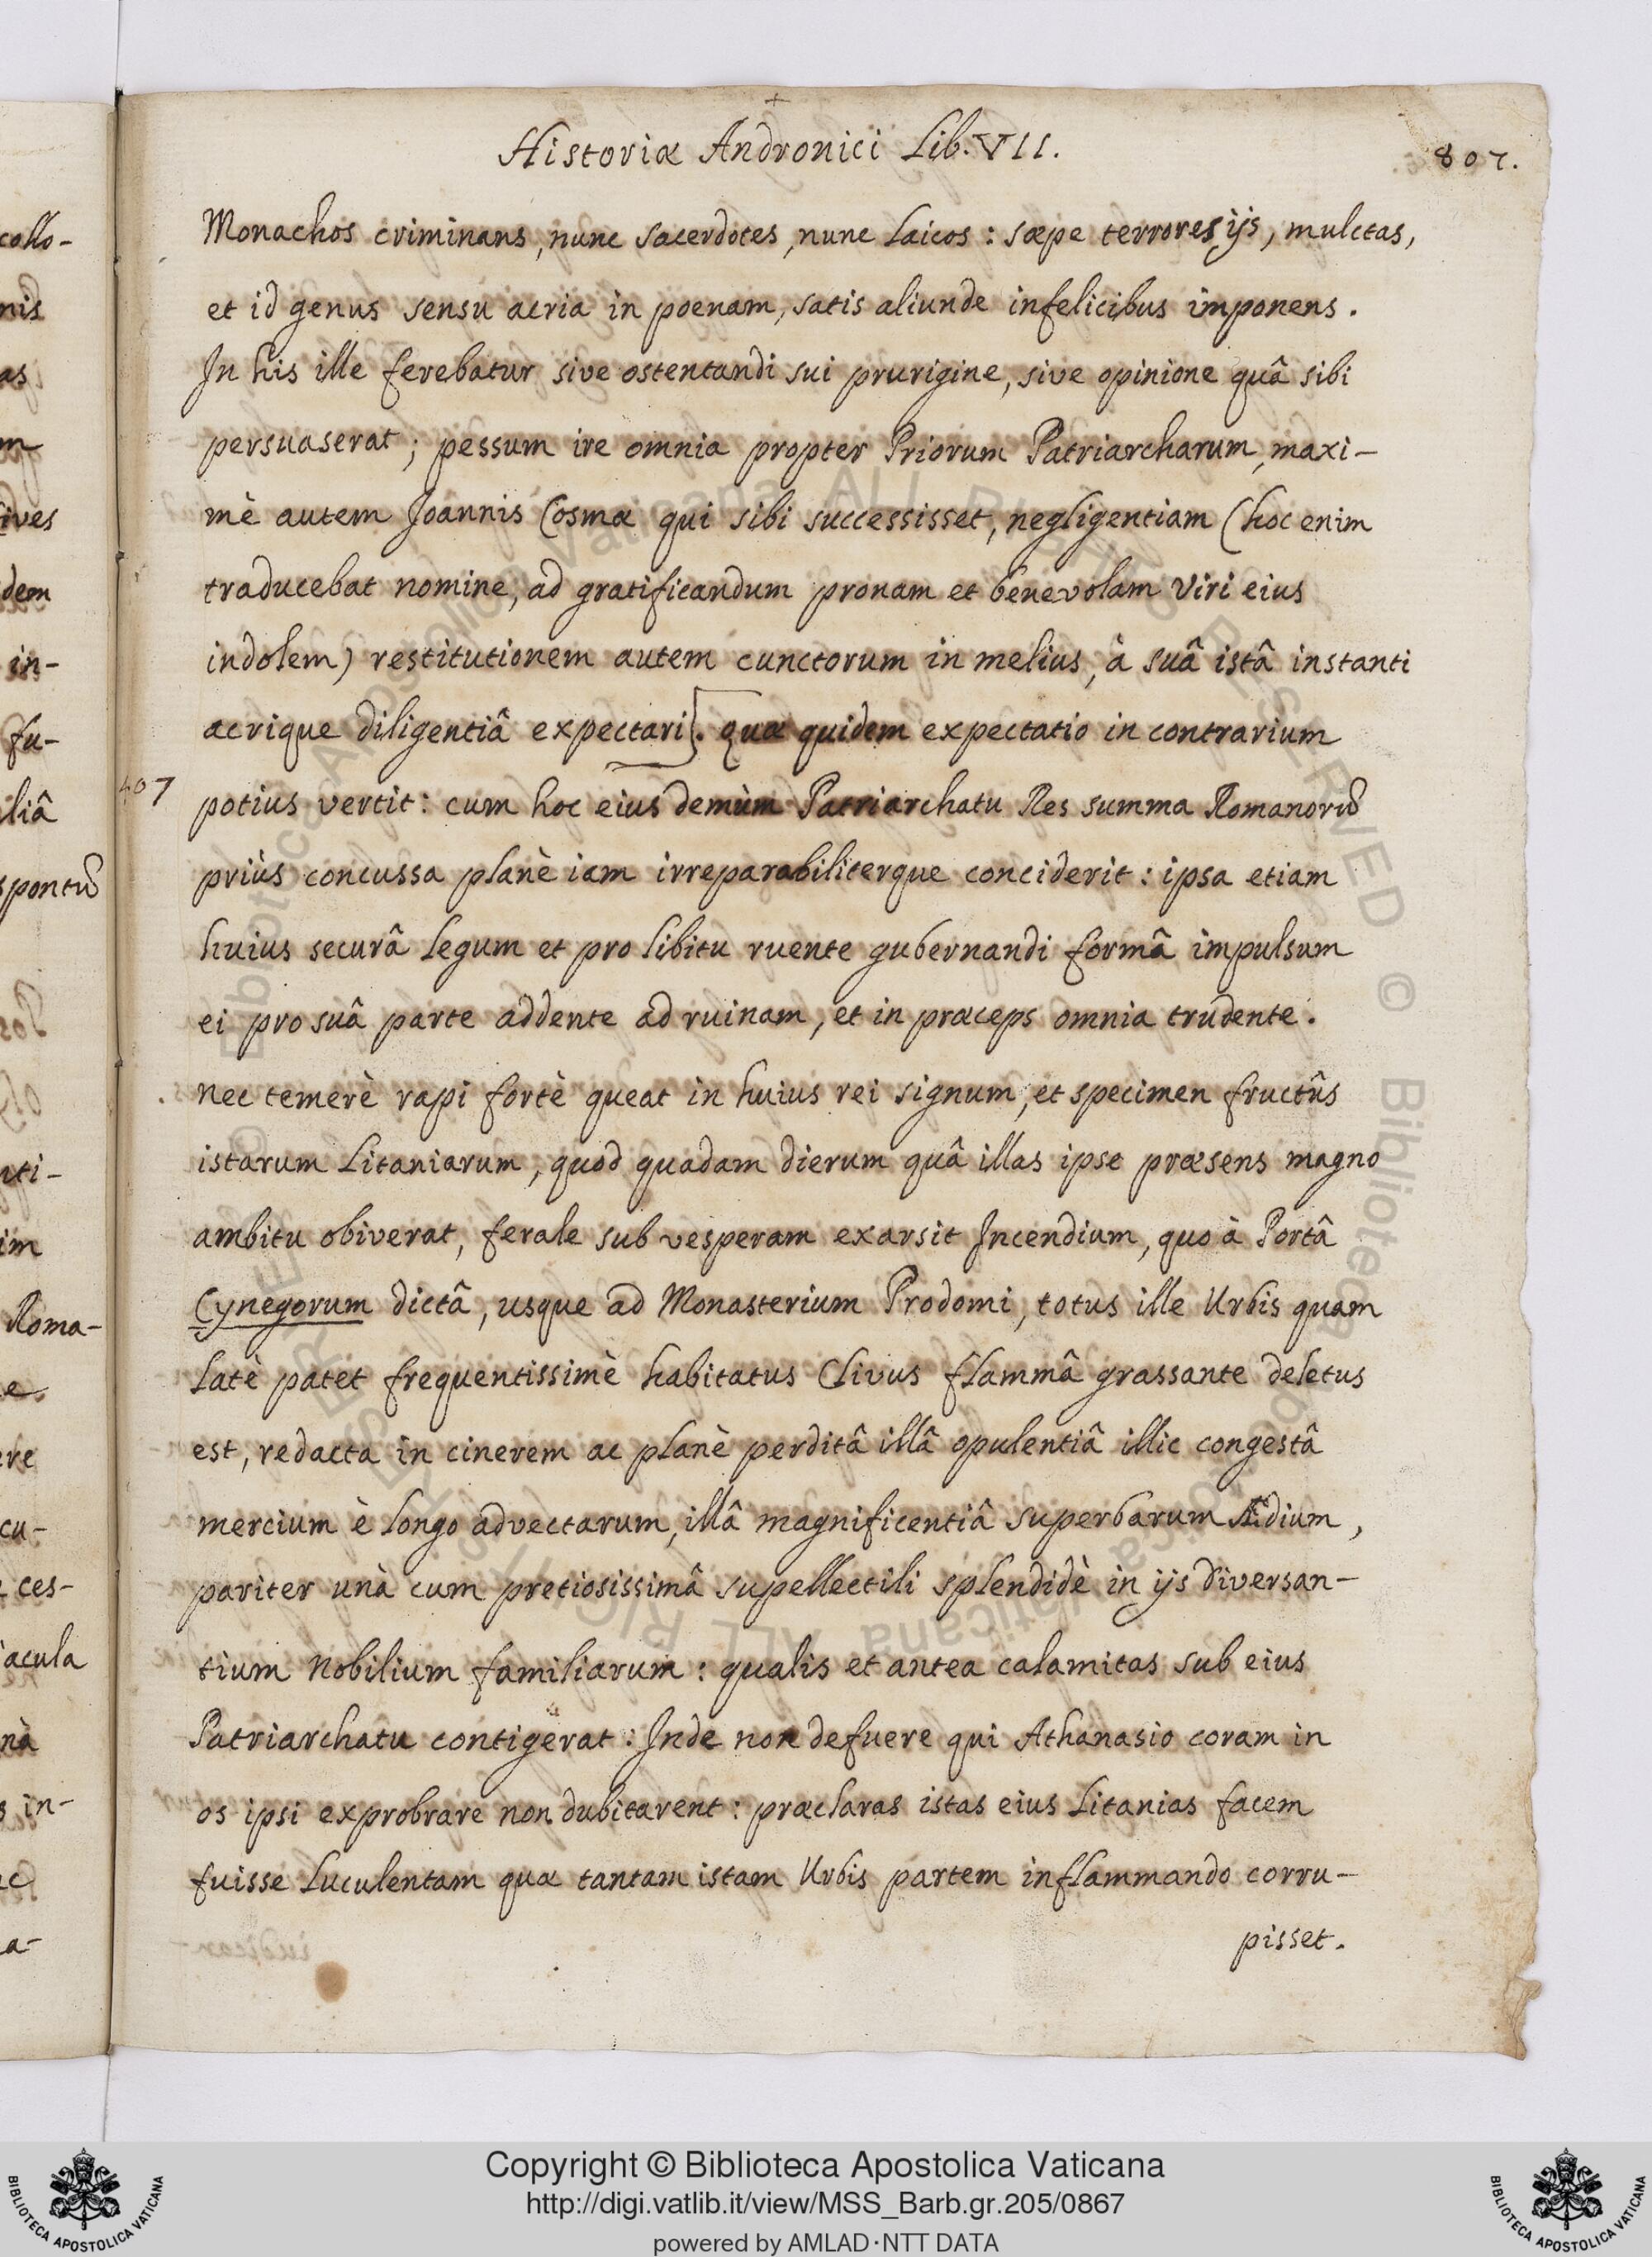 Historiæ Andronici Lib. VII.
807.
Monachos criminans, nunc sacerdotes, nunc Laicos : sæpe terrores ijs, mulctas,
et id genus sensu acria in poenam, satis aliunde infelicibus imponens.
In his ille ferebatur sive ostentandi sui prurigine, sive opinione quâ sibi
persuaserat ; pessum ire omnia propter Priorum Patriarcharum, maxi-
mè autem Joannis Cosmæ qui sibi successisset, negligentiam (hoc enim
traducebat nomine, ad gratificandum pronam et benevolam Viri eius
indolem) restitutionem autem cunctorum in melius, à suâ istâ instanti
acrique diligentiâ expectari]. Quæ quidem expectatio in contrarium
407
potius vertit : cum hoc eius demùm Patriarchatu Res summa Romanorũ
priùs concussa planè iam irreparabiliterque conciderit : ipsa etiam
huius securâ Legum et pro libitu ruente gubernandi formâ impulsum
ei pro suâ parte addente ad ruinam, et in præceps omnia trudente.
nec temerè rapi fortè queat in huius rei signum, et specimen fructûs
istarum Litaniarum, quod quadam dierum quâ illas ipse præsens magno
ambitu obiverat, ferale sub vesperam exarsit Incendium, quo à Portâ
Cynegorum dictâ, usque ad Monasterium Prodomi, totus ille Urbis quam
latè patet frequentissimè habitatus Clivus flammâ grassante deletus
est, redacta in cinerem ac planè perditâ illâ opulentiâ illic congestâ
mercium è longo advectarum, illâ magnificentiâ superbarum Ædium,
pariter unà cum pretiosissimâ supellectili splendidè in ijs diversan-
tium Nobilium familiarum : qualis et antea calamitas sub eius
Patriarchatu contigerat : Inde non defuere qui Athanasio coram in
os ipsi exprobrare non dubitarent : præclaras istas eius Litanias facem
fuisse Luculentam quæ tantam istam Urbis partem inflammando corru-
pisset.
collo-
nis
as
m
ives
dem
in-
fu-
liâ
spontũ
uti-
im
Roma-
e
ere
cu-
ces-
acula
nà
in-
ac
a-
Copyright © Biblioteca Apostolica Vaticana
http://digi.vatlib.it/view/MSS_Barb.gr.205/0867
powered by AMLAD·NTT DATA
BIBLIOTECA APOSTOLICA VATICANA
BIBLIOTECA APOSTOLICA VATICANA